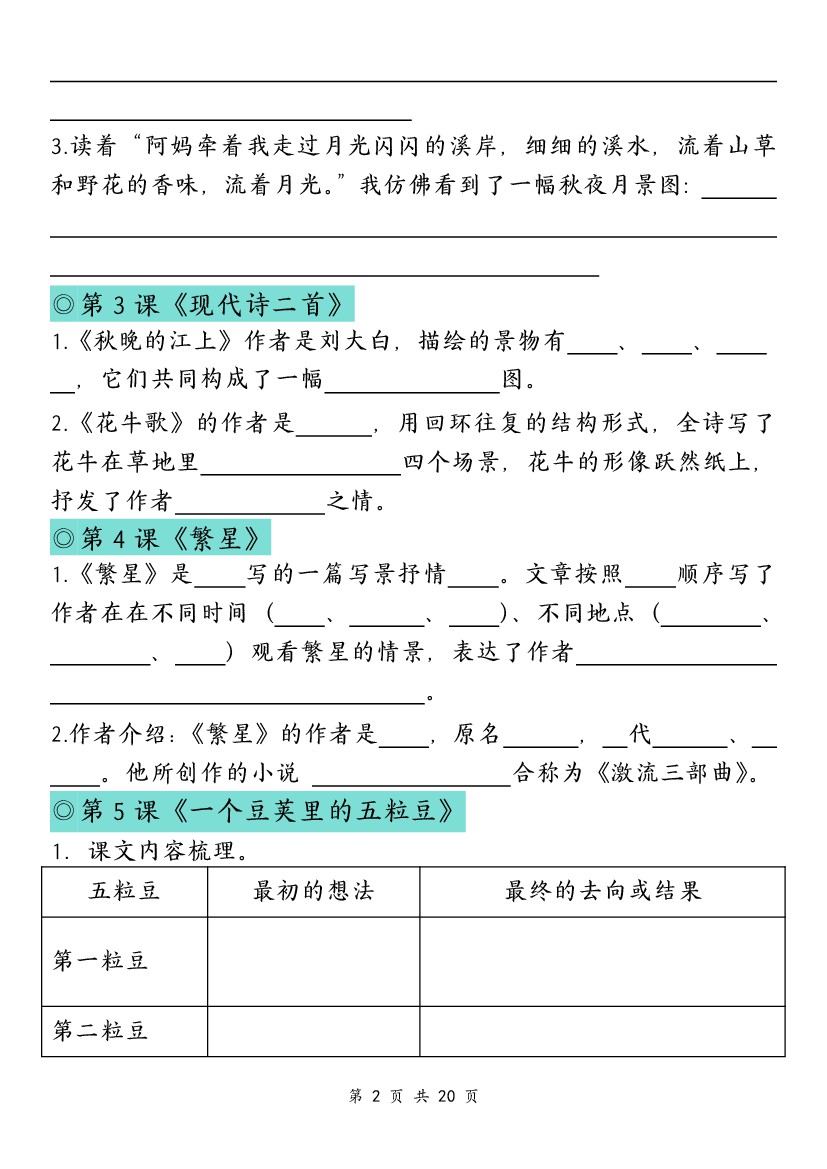 3.读着“阿妈牵着我走过月光闪闪的溪岸，细细的溪水，流着山草
和野花的香味，流着月光。”我仿佛看到了一幅秋夜月景图：______
◎第 3 课《现代诗二首》
1.《秋晚的江上》作者是刘大白，描绘的景物有____、____、____
__，它们共同构成了一幅______________图。
2.《花牛歌》的作者是______，用回环往复的结构形式，全诗写了
花牛在草地里________________四个场景，花牛的形像跃然纸上，
抒发了作者____________之情。
◎第 4 课《繁星》
1.《繁星》是____写的一篇写景抒情____。文章按照____顺序写了
作者在在不同时间（____、______、____）、不同地点（________、
________、____）观看繁星的情景，表达了作者________________
______________________________。
2.作者介绍：《繁星》的作者是____，原名______，__代______、__
____。他所创作的小说 ________________合称为《激流三部曲》。
◎第 5 课《一个豆荚里的五粒豆》
1. 课文内容梳理。
五粒豆 最初的想法 最终的去向或结果
第一粒豆
第二粒豆
第 2 页 共 20 页